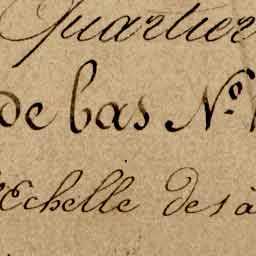 Quartier
de bas N.º
Echelle des à